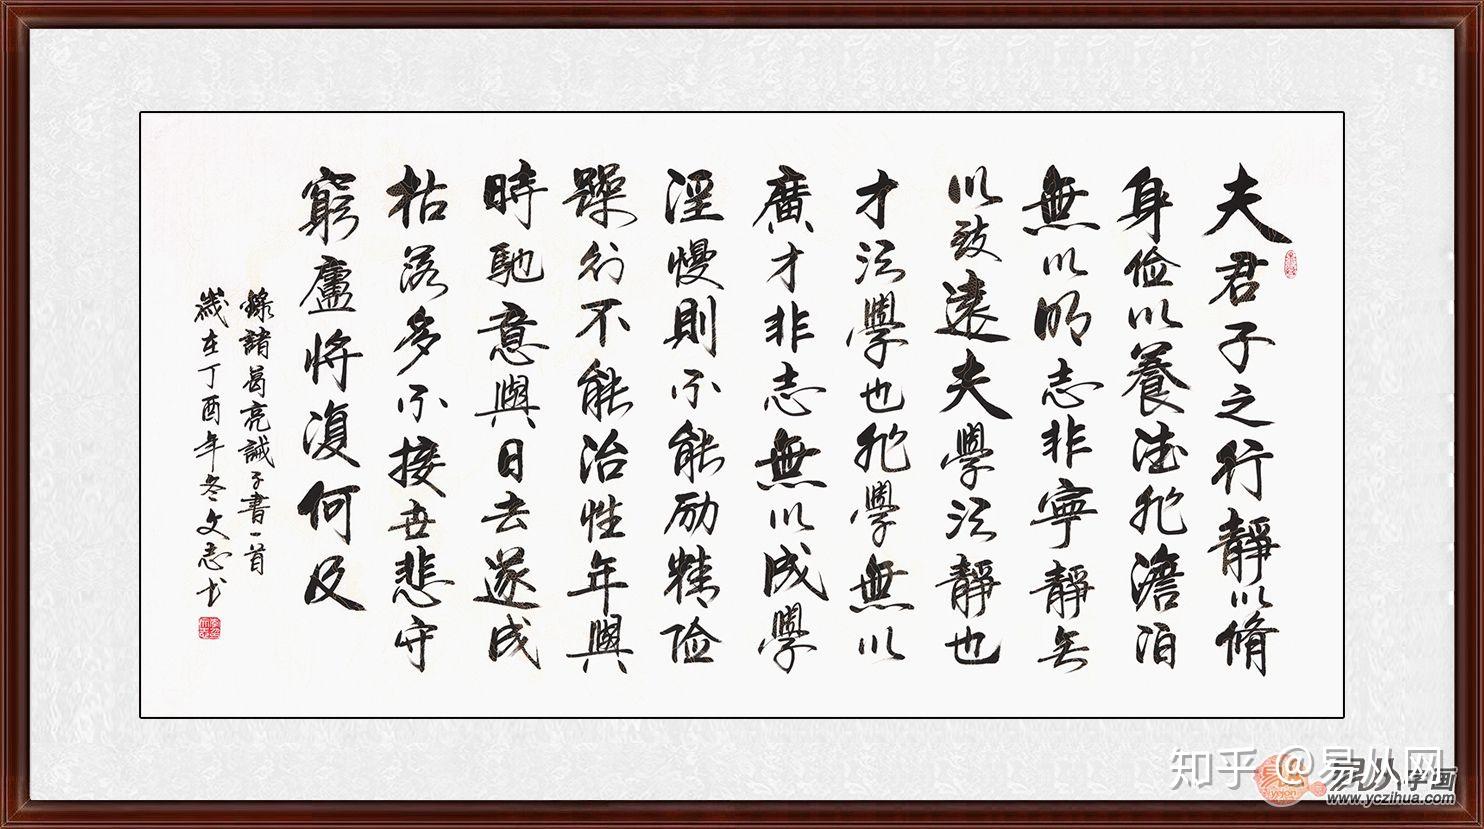 夫君子之行靜以脩
身俭以養德非澹泊
無以明志非寧靜无
以致遠夫學須靜也
才須學也非學無以
廣才非志無以成學
淫慢則不能励精险
躁则不能治性年與
時馳意與日去遂成
枯落多不接世悲守
窮廬將復何及
錄諸葛亮誡子書一首
歲在丁酉年冬文志书
知乎 @易从网
易从字画
www.yczihua.com